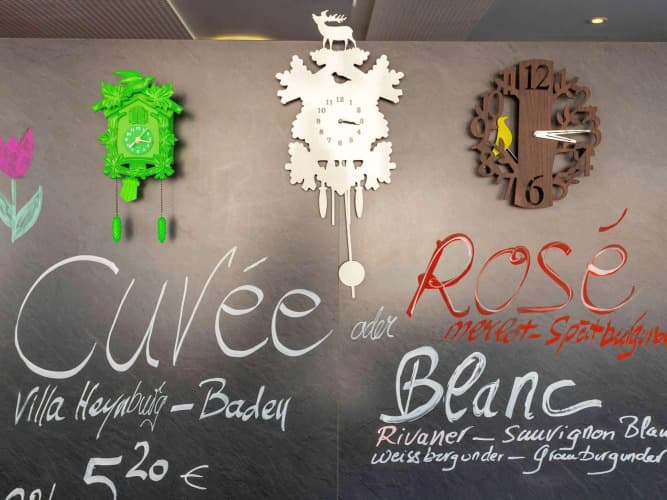 12
6
12
3
6
9
Cuvée
oder
Rosé
merlot - Spätburgunder
Villa Heynburg - Baden
Blanc
Rivaner - Sauvignon Blan
weissburgunder - Grauburgunder
5 20 €